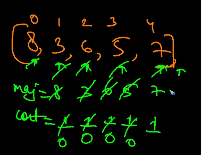 0 1 2 3 4
[8, 3, 6, 5, 7]
maj = 8 7 6 5 7
count = 1 1 1 1 1
0 0 0 0